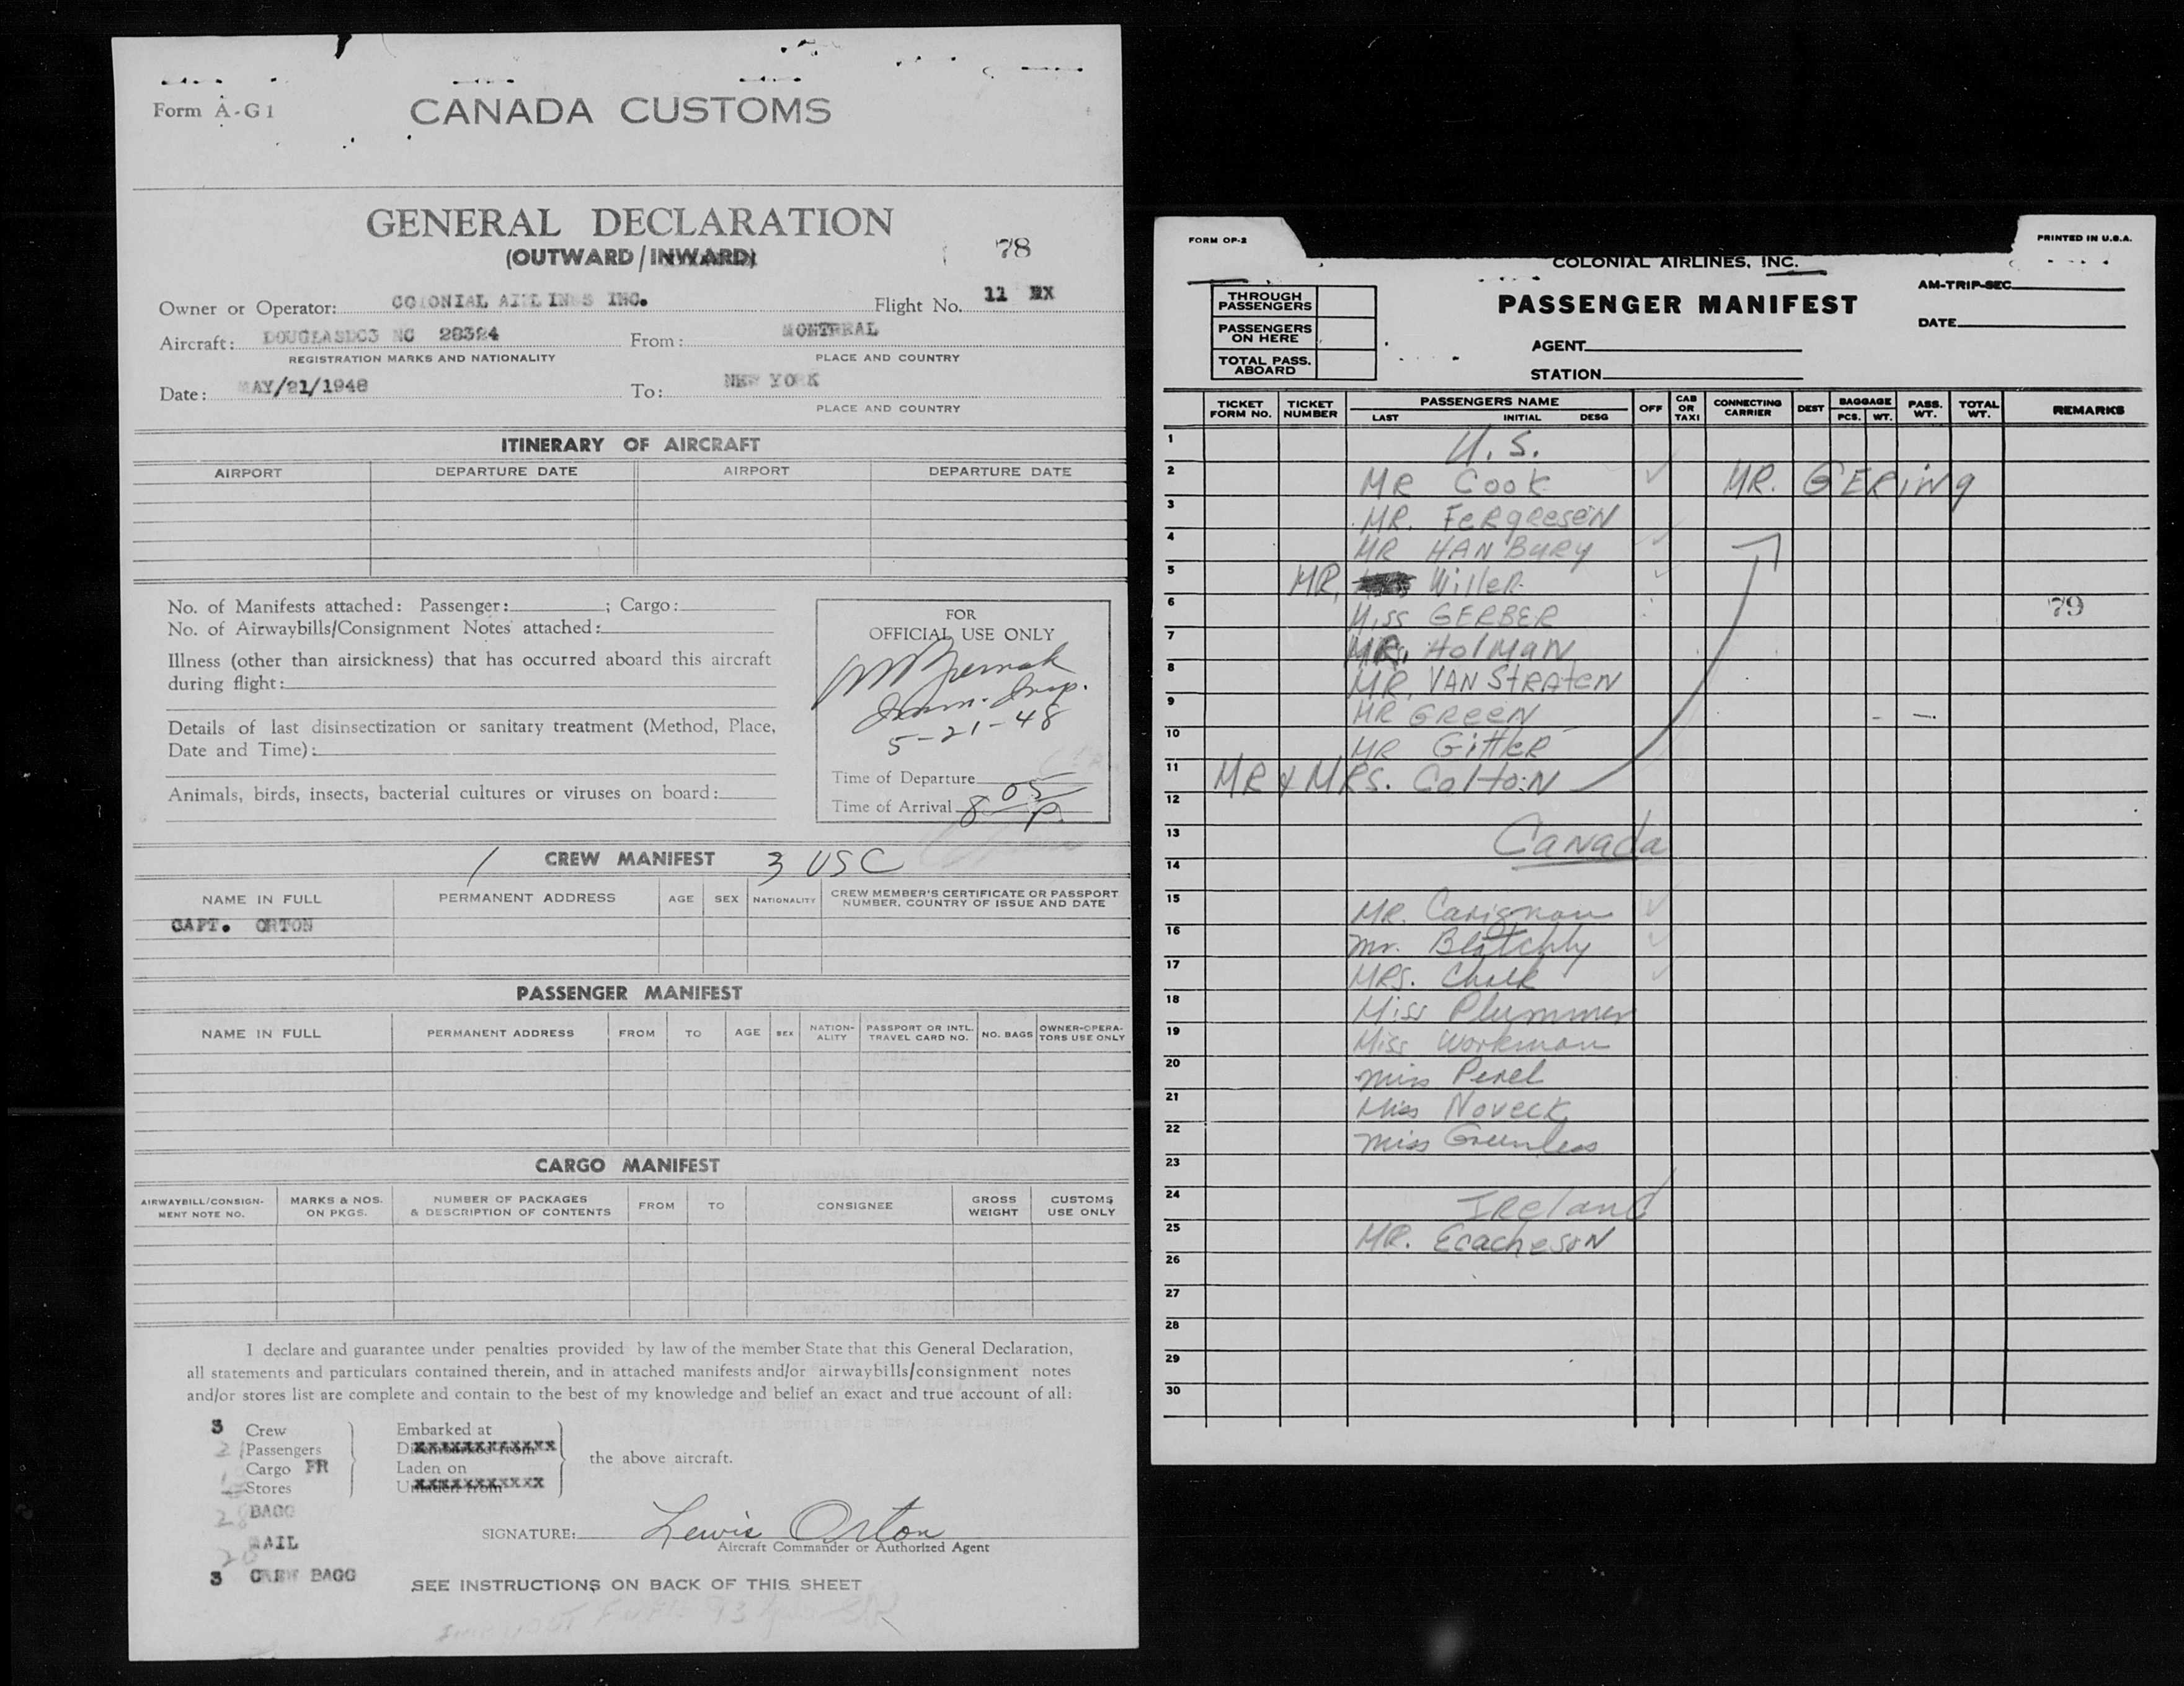 Form A-G1
CANADA CUSTOMS
GENERAL DECLARATION
(OUTWARD/INWARD)
78
Owner or Operator: COLONIAL AIRLINES INC. Flight No. 11 EX
Aircraft: DOUGLASDC3 NC 28384 From: MONTREAL
REGISTRATION MARKS AND NATIONALITY PLACE AND COUNTRY
Date: MAY/21/1948 To: NEW YORK
PLACE AND COUNTRY
ITINERARY OF AIRCRAFT
AIRPORT DEPARTURE DATE AIRPORT DEPARTURE DATE
No. of Manifests attached: Passenger: ; Cargo:
No. of Airwaybills/Consignment Notes attached:
Illness (other than airsickness) that has occurred aboard this aircraft
during flight:
Details of last disinsectization or sanitary treatment (Method, Place,
Date and Time):
Animals, birds, insects, bacterial cultures or viruses on board:
FOR
OFFICIAL USE ONLY
Imm. Insp.
5-21-48
Time of Departure
Time of Arrival 8 05 P.
/ CREW MANIFEST 3 USC
NAME IN FULL PERMANENT ADDRESS AGE SEX NATIONALITY CREW MEMBER'S CERTIFICATE OR PASSPORT NUMBER, COUNTRY OF ISSUE AND DATE
CAPT. ORTON
PASSENGER MANIFEST
NAME IN FULL PERMANENT ADDRESS FROM TO AGE SEX NATION-ALITY PASSPORT OR INTL. TRAVEL CARD NO. NO. BAGS OWNER-OPERA-TORS USE ONLY
CARGO MANIFEST
AIRWAYBILL/CONSIGN-MENT NOTE NO. MARKS & NOS. ON PKGS. NUMBER OF PACKAGES & DESCRIPTION OF CONTENTS FROM TO CONSIGNEE GROSS WEIGHT CUSTOMS USE ONLY
I declare and guarantee under penalties provided by law of the member State that this General Declaration,
all statements and particulars contained therein, and in attached manifests and/or airwaybills/consignment notes
and/or stores list are complete and contain to the best of my knowledge and belief an exact and true account of all:
3 Crew Embarked at
21 Passengers Disembarked from
Cargo FR Laden on
Stores Unladen from
the above aircraft.
28 BAGG
MAIL
3 CREW BAGG
SIGNATURE: Lewis Orton
Aircraft Commander or Authorized Agent
SEE INSTRUCTIONS ON BACK OF THIS SHEET
FORM OP-2
PRINTED IN U.S.A.
COLONIAL AIRLINES, INC.
PASSENGER MANIFEST
THROUGH PASSENGERS
PASSENGERS ON HERE
TOTAL PASS. ABOARD
AM-TRIP-SEC.
DATE
AGENT
STATION
TICKET FORM NO. TICKET NUMBER PASSENGERS NAME LAST INITIAL DESG OFF CAB OR TAXI CONNECTING CARRIER DEST BAGGAGE PCS. WT. PASS. WT. TOTAL WT. REMARKS
1 U.S.
2 MR Cook MR. GERing
3 MR. FeRgResen
4 MR HANBury
5 MR. Willer
6 Miss GERBER
79
7 MR. HolmAN
8 MR. VAN StRAteN
9 MR GReeN
10 MR GittleR
11 MR & MRS. ColtoN
12
13 Canada
14
15 MR. Carignan
16 Mr. Blatchly
17 MRS. Chalk
18 Miss Plummer
19 Miss Workman
20 Miss Perel
21 Miss Noveck
22 Miss Greenless
23
24 Ireland
25 MR. EcachesoN
26
27
28
29
30